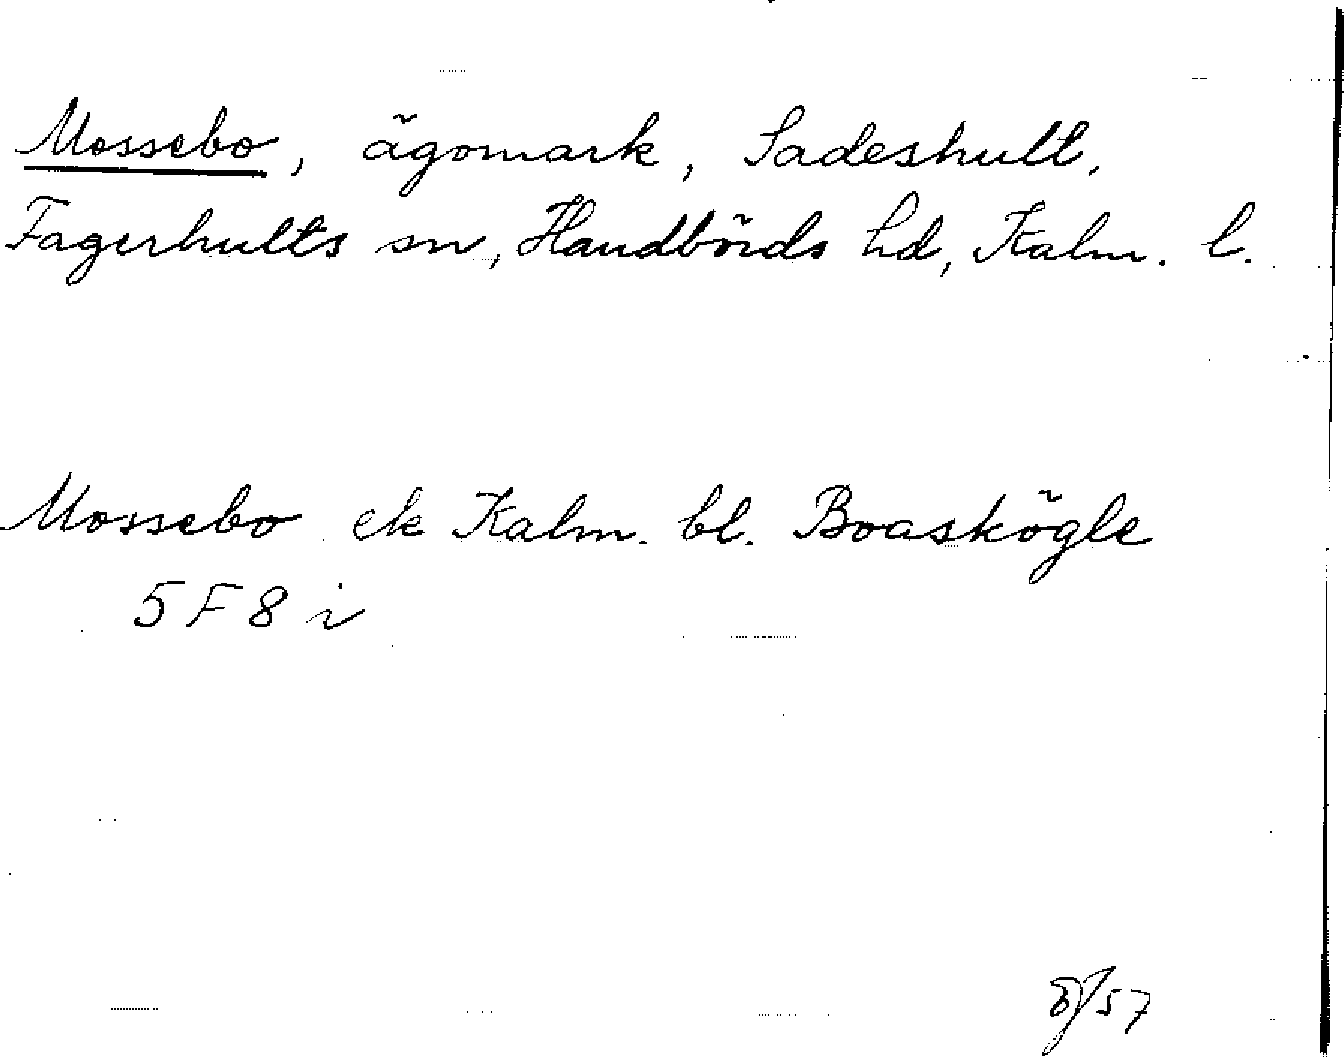 Mossebo, ägomark, Sadeshult,
Fagerhults sn, Handbörds hd, Kalm. l.
Mossebo ek Kalm. bl. Boaskögle
5 F 8 i
/57